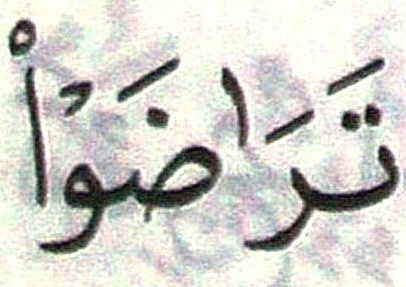 تَرَٰضَوْا۟